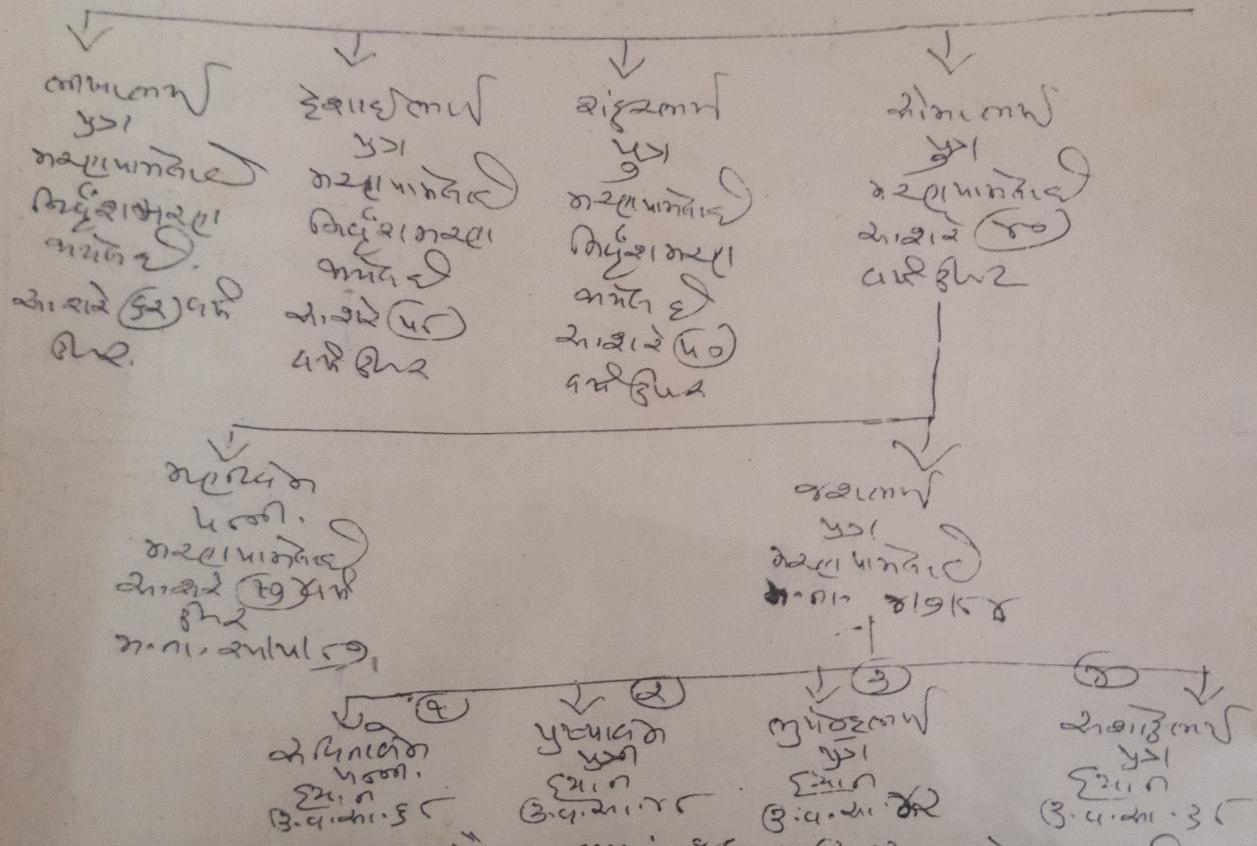 લાખાભાઈ
પુત્ર
મરણ પામેલ છે
નિર્વંશ મરણ
થયેલ છે.
આશરે ૬૨ વર્ષ
ઉપર.
દેસાઈભાઈ
પુત્ર
મરણ પામેલ છે
નિર્વંશ મરણ
થયેલ છે
આશરે ૫૮
વર્ષ ઉપર
શંકરભાઈ
પુત્ર
મરણ પામેલ છે
નિર્વંશ મરણ
થયેલ છે
આશરે ૫૦
વર્ષ ઉપર
સોમાભાઈ
પુત્ર
મરણ પામેલ છે
આશરે ૪૦
વર્ષ ઉપર
પત્ની.
મરણ પામેલ છે
આશરે ૧૭ વર્ષ
ઉપર
મ.તા.
જશભાઈ
પુત્ર
મરણ પામેલ છે
મ.તા. ૪/૭/૮૪
૧
સવિતાબેન
પત્ની.
હયાત
ઉ.વ.આ. ૬૮
૨
પુષ્પાબેન
પુત્રી
હયાત
ઉ.વ.આ. ૪૮
૩
ભુપેન્દ્રભાઈ
પુત્ર
હયાત
ઉ.વ.આ. ૪૨
૪
અશોકભાઈ
પુત્ર
હયાત
ઉ.વ.આ. ૩૮